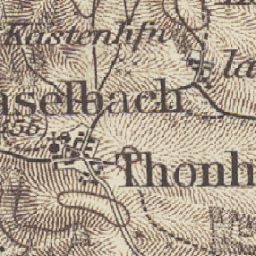 Kastenhfn
la
aselbach
456
Thonh